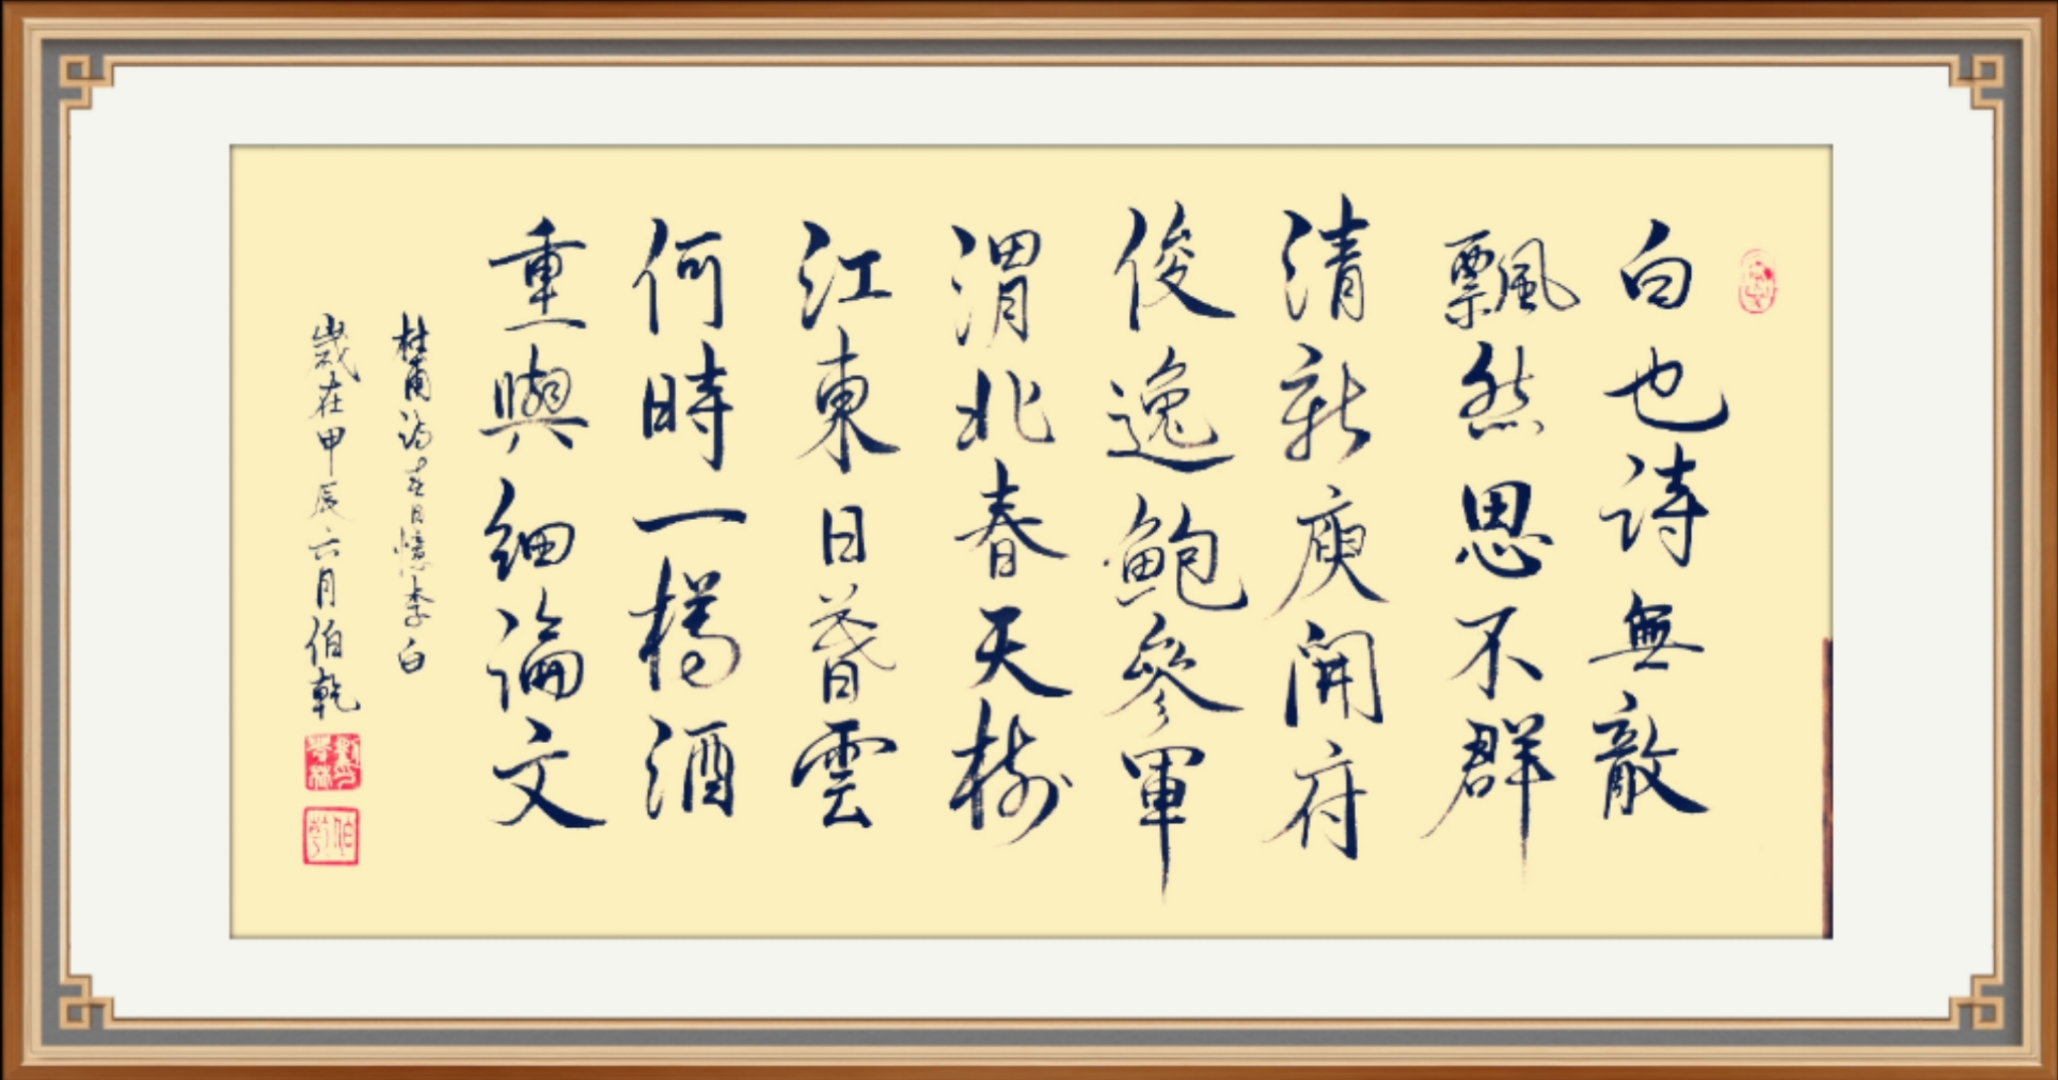 白也詩無敵
飄然思不群
清新庾開府
俊逸鮑參軍
渭北春天樹
江東日暮雲
何時一樽酒
重與細論文
杜甫詩春日憶李白
歲在甲辰六月伯乾